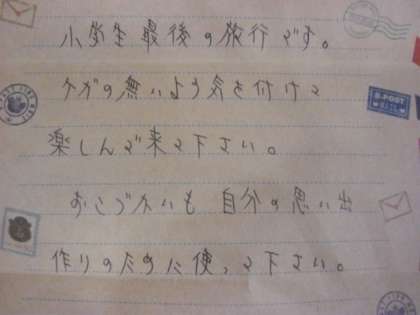 小学生最後の旅行です。
ケガの無いよう気を付けて
楽しんで来て下さい。
おこづかいも 自分の思い出
作りのために使って下さい。